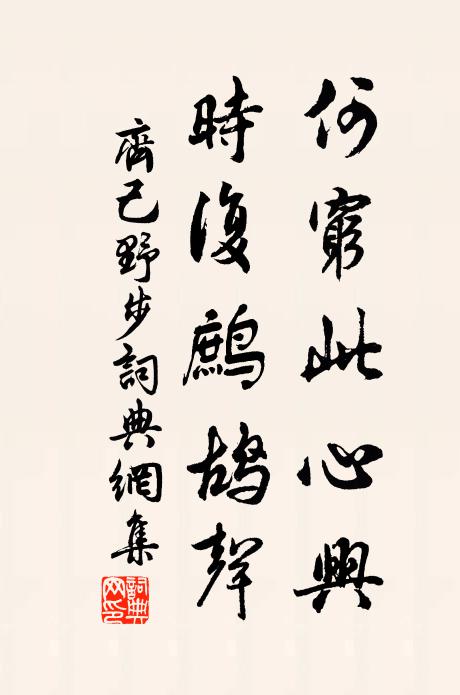 何窮此心興
時復鷓鴣聲
齊己野步詞典網集
詞典网印